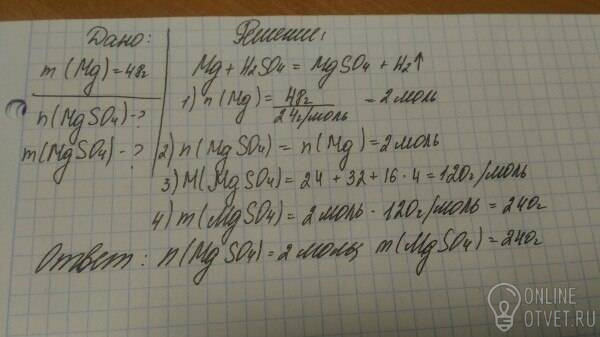 Дано:
m(Mg)=48г
n(MgSO4)-?
m(MgSO4)-?
Решение:
Mg + H2SO4 = MgSO4 + H2↑
1) n(Mg) = 48г / 24г/моль = 2 моль
2) n(MgSO4) = n(Mg) = 2 моль
3) M(MgSO4) = 24 + 32 + 16 · 4 = 120г/моль
4) m(MgSO4) = 2 моль · 120г/моль = 240г
Ответ: n(MgSO4) = 2 моль; m(MgSO4) = 240г
ONLINE
OTVET.RU